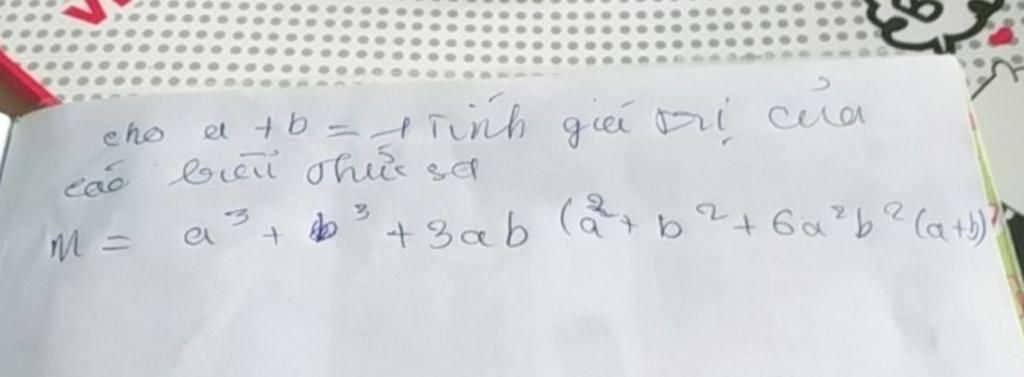 cho a + b = -1 Tính giá trị của
các biểu thức sa
M = a³ + b³ + 3ab (a² + b² + 6a²b² (a+b)